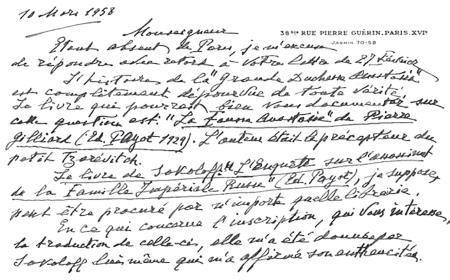 10 Mars 1958
38 BIS RUE PIERRE GUÉRIN. PARIS. XVIᵉ
JASMIN 70-58
Monseigneur
Etant absent de Paris, je m'excuse
de répondre avec retard à votre lettre de 27 Février
L'histoire de la "grande Duchesse Anastasie"
est complètement dépourvue de toute vérité.
Le livre qui pourrait bien vous documenter sur
cette question est: "La Fausse Anastasie" de Pierre
Gilliard (Ed. Payot 1929). L'auteur était le précepteur du
petit Tzarévitch.
Le livre de Sokoloff "L'Enquête sur l'assassinat
de la Famille Impériale Russe" (Ed. Payot), je suppose,
peut être procuré par n'importe quelle librairie.
En ce qui concerne l'inscription, qui vous intéresse,
la traduction de celle-ci, elle m'a été donnée par
Sokoloff lui même qui m'a affirmé son authenticité.